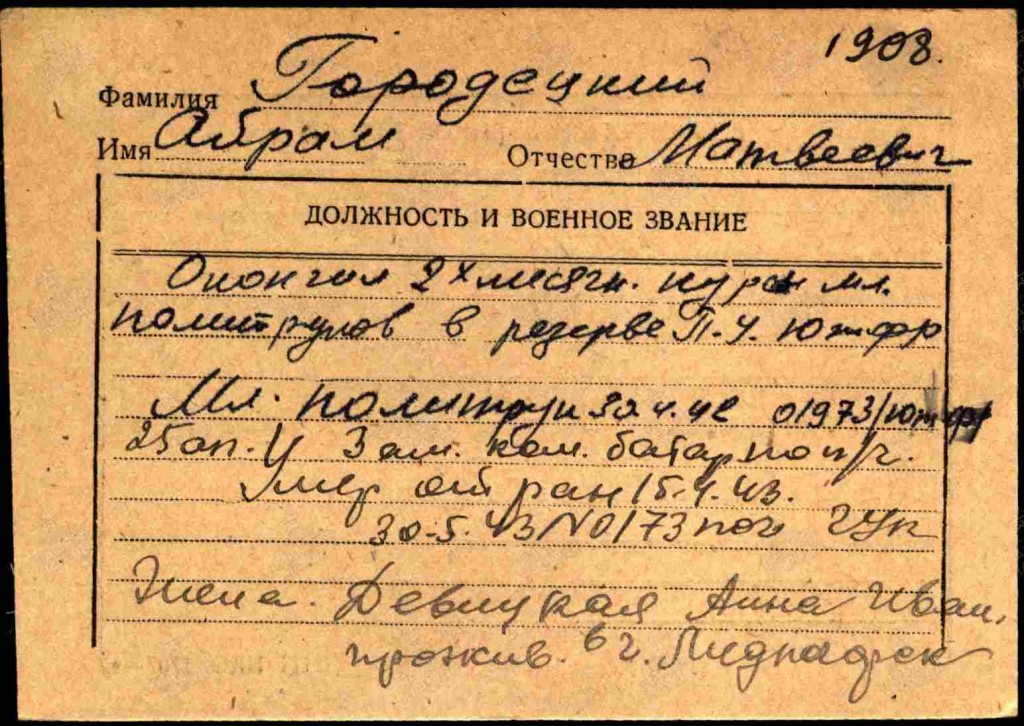 1908.
Фамилия Городецкий
Имя Абрам Отчество Матвеевич
ДОЛЖНОСТЬ И ВОЕННОЕ ЗВАНИЕ
Окончил 2х месячн. курсы мл.
политруков в резерве П.У. Южфр
Мл. политрук 30.4.42 01973/Южфр
25оп. У Зам. ком. батар по п/ч.
Умер от ран 15.4.43.
30.5.43 № 0173 пог ГУК
Жена. Девицкая Анна Иван.
прожив. в г.